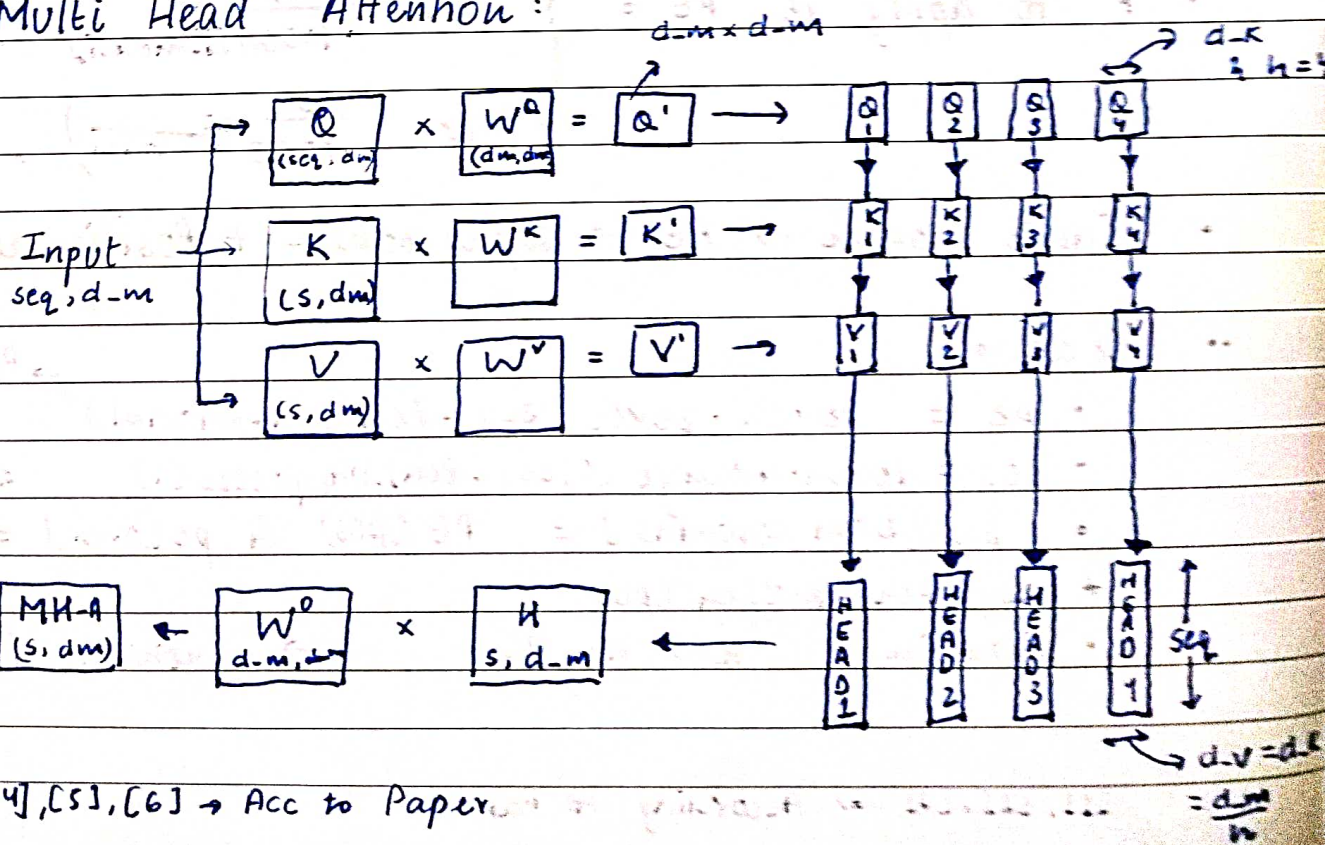 Multi Head Attention:
d-m x d-m
d-k
; h=4
Q (seq, dm) x W^Q (dm, dm) = Q' → Q1 Q2 Q3 Q4
Input
seq, d-m
K (s, dm) x W^K = K' → K1 K2 K3 K4
V (s, dm) x W^V = V' → V1 V2 V3 V4
MH-A (s, dm) ← W^O d-m, x H s, d-m ← HEAD1 HEAD2 HEAD3 HEAD4 seq
d-v = d
= dm/h
4], [5], [6] → Acc to Paper